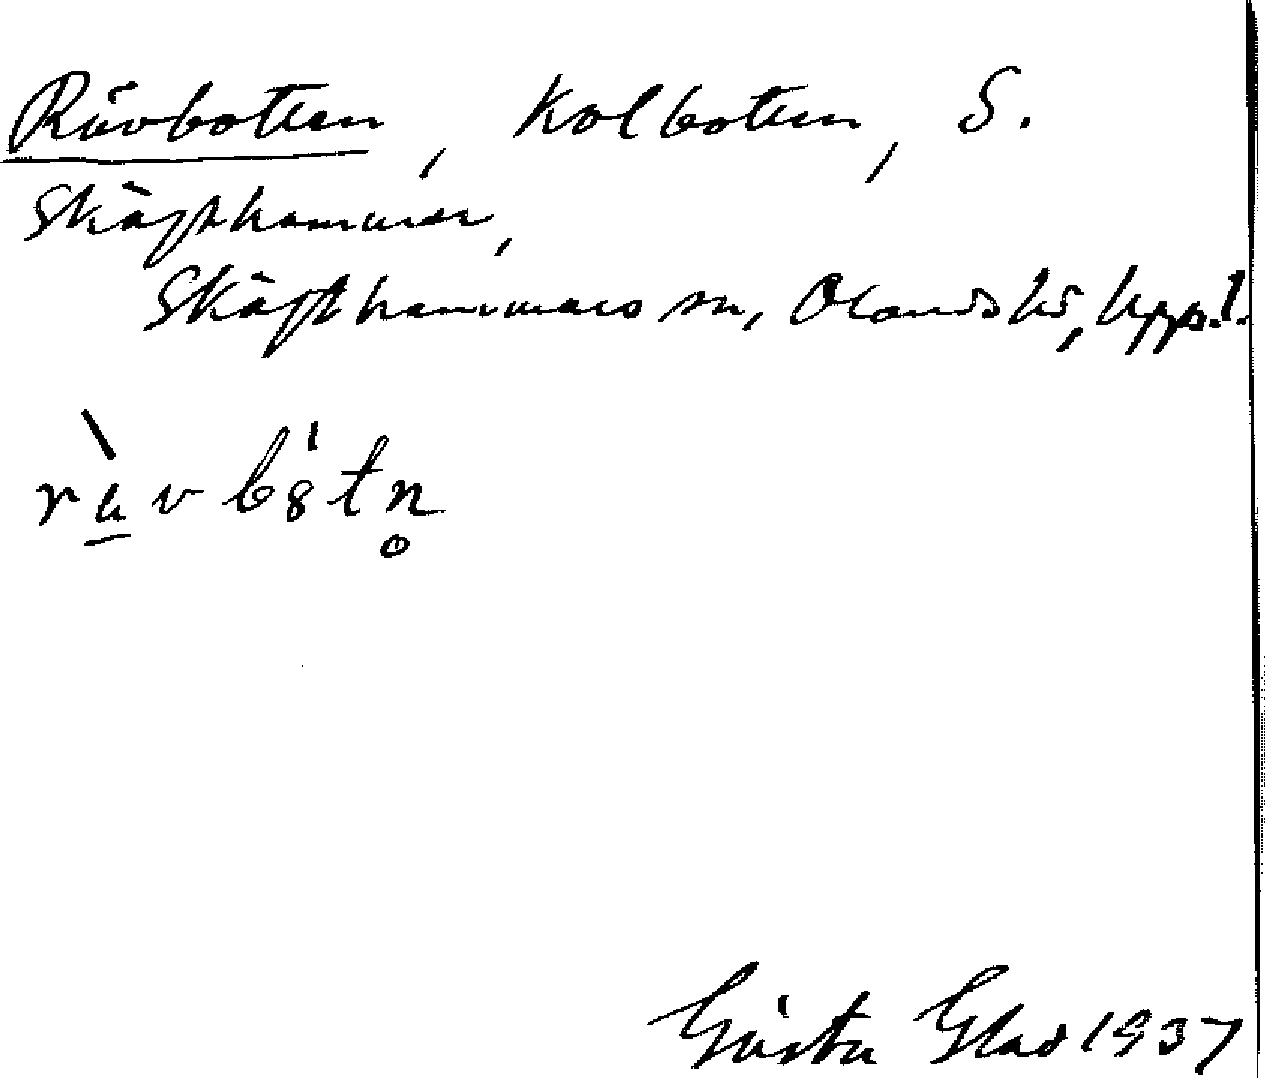 Rävbotten, Kolbotten, S.
Skäfthammar,
Skäfthammars sn, Olands hd, Uppl.
Gösta Glad 1937